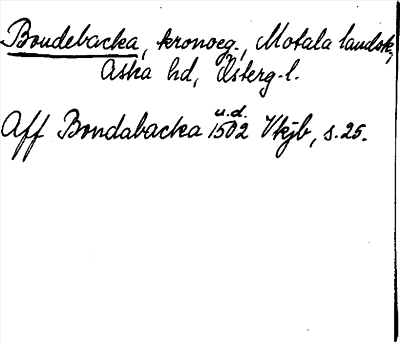 Bondebacka, kronoeg., Motala landsk,
Aska hd, Österg. l.
u.d.
Aff Bondabacka 1502 Vkjb, s. 25.